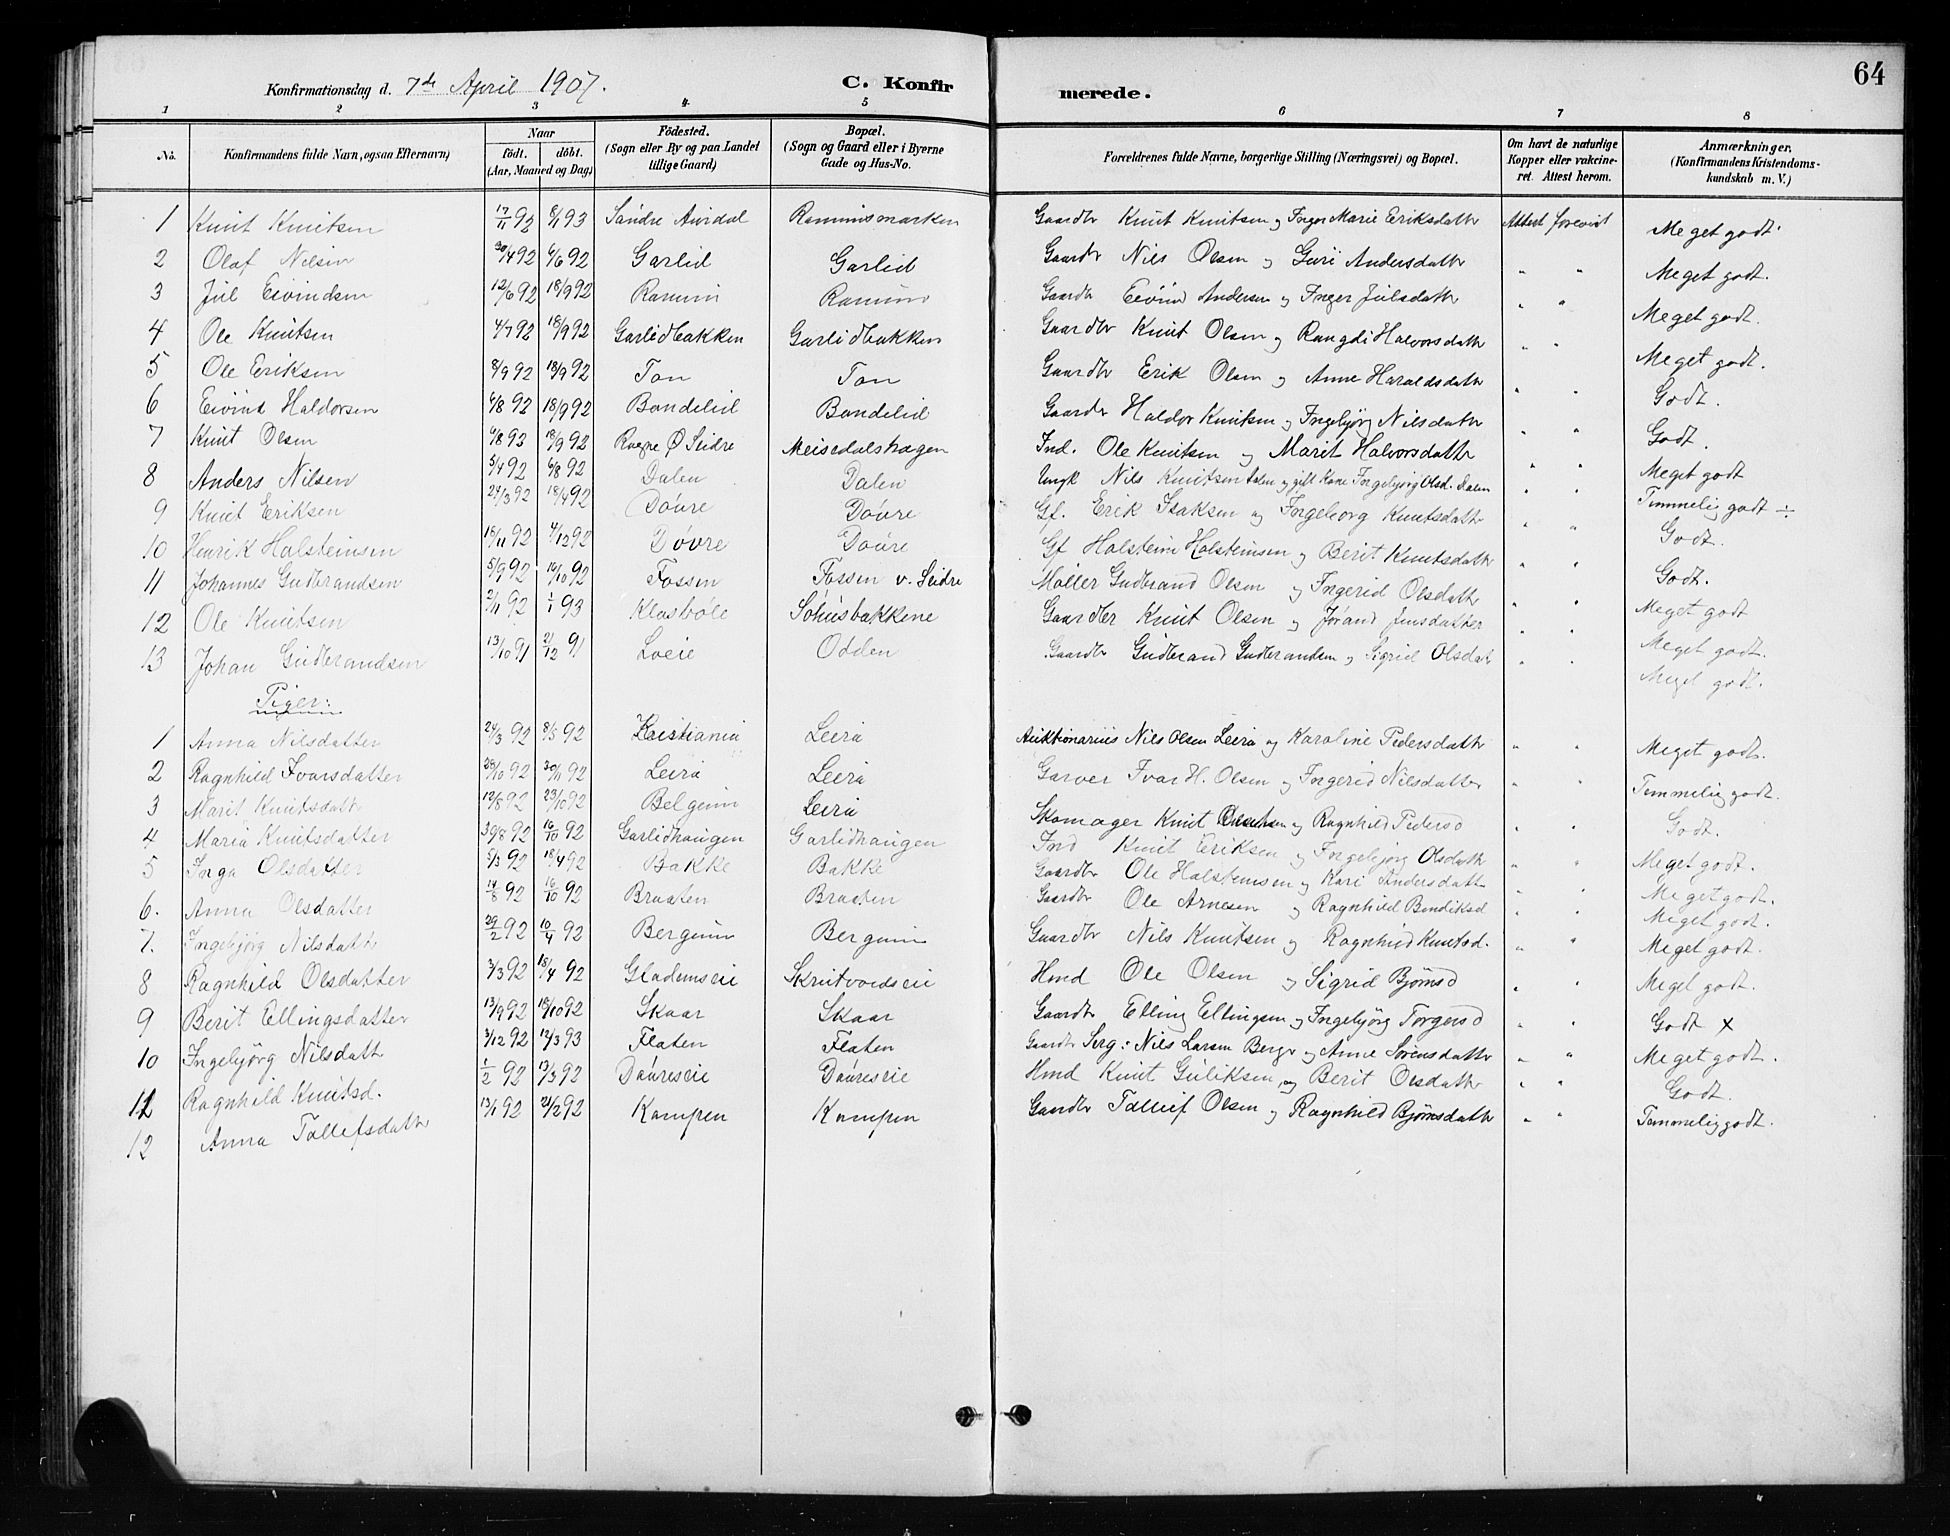 64
Konfirmationsdag d. 7de April 1907. C. Konfirmerede.
1 2 3 4 5 6 7 8
No. Konfirmandens fulde Navn, ogsaa Efternavn) Naar födt. döbt. (Aar, Maaned og Dag) Födested. (Sogn eller By og paa Landet tillige Gaard) Bopæl. (Sogn og Gaard eller i Byerne Gade og Hus-No. Forældrenes fulde Navne, borgerlige Stilling (Næringsvei) og Bopæl. Om havt de naturlige Kopper eller vakcineret. Attest herom. Anmærkninger. (Konfirmandens Kristendomskundskab m. V.)
1 Knut Knutsen 17/11 92 8/1 93 Søndre Aurdal Ramnismarken Gaardbr Knut Knutsen og Inger Marie Eriksdatter Attest forevist Meget godt.
2 Olaf Nilsen 30/4 92 6/6 92 Garlid Garlid Gaardbr Nils Olsen og Guri Andersdatter " " Meget godt.
3 Jul Eivindsen 12/6 92 18/9 92 Ramun Ramun Gaardbr Eivind Andersen og Inger Julsdatter " " Meget godt.
4 Ole Knutsen 4/7 92 18/9 92 Garlidbakken Garlidbakken Gaardbr Knut Olsen og Rangdi Halvorsdatter " " Meget godt.
5 Ole Eriksen 8/9 92 18/9 92 Ton Ton Gaardbr Erik Olsen og Anne Haraldsdatter " " Godt.
6 Eivind Haldorsen 6/8 92 18/9 92 Bandelid Bandelid Gaardbr Haldor Knutsen og Ingebjørg Nilsdatter " " Godt.
7 Knut Olsen 6/8 92 18/9 92 Rogne Ø Slidre Meisedalshagen Ind. Ole Knutsen og Marit Halvorsdatter " " Meget godt
8 Anders Nilsen 5/4 92 6/8 92 Dalen Dalen Ungk Nils Knutsen Dalen og gift Kone Ingebjørg Olsd. Dalen " " Temmelig godt ÷
9 Knut Eriksen 24/3 92 18/4 92 Døvre Døvre Gf. Erik Isaksen og Ingeborg Knutsdatter " " Godt.
10 Henrik Halsteinsen 18/11 92 4/12 92 Døvre Døvre Gf Halstein Halsteinsen og Berit Knutsdatter " " Godt.
11 Johannes Gudbrandsen 5/9 92 16/10 92 Fossen Fossen v. Slidre Møller Gudbrand Olsen og Ingerid Olsdatter " " Meget godt
12 Ole Knutsen 2/11 92 1/1 93 Klasbøle Sohusbakkene Gaardbr Knut Olsen og Jørand Jensdatter " " Meget godt.
13 Johan Gudbrandsen 13/10 91 2/12 91 Lveie Odden Gaardbr Gudbrand Gudbrandsen og Sigrid Olsdatt " " Meget godt.
Piger:
1 Anna Nilsdatter 24/3 92 8/5 92 Kristiania Leira Auktionarius Nils Olsen Leira og Karoline Pedersdatter " " Meget godt.
2 Ragnhild Ivarsdatter 28/10 92 20/11 92 Leira Leira Garver Ivar H. Olsen og Ingerid Nilsdatter " " Temmelig godt.
3 Marit Knutsdatter 12/8 92 23/10 92 Belgum Leira Skomager Knut og Ragnhild Pedersd " " Godt.
4 Maria Knutsdatter 30/8 92 16/10 92 Garlidhaugen Garlidhaugen Ind Knut Eriksen og Ingebjørg Olsdatter " " Meget godt.
5 Inga Olsdatter 5/3 92 18/4 92 Bakke Bakke Gaardbr Ole Halsteinsen og Kari Andersdatter " " Meget godt.
6. Anna Olsdatter 14/8 92 16/10 92 Braaten Braaten Gaardbr Ole Arnesen og Ragnhild Bendiksd " " Meget godt.
7. Ingebjørg Nilsdatter 29/2 92 10/4 92 Bergum Bergum Gaardbr Nils Knutsen og Ragnhild Knutsd. " " Meget godt.
8 Ragnhild Olsdatter 3/3 92 18/4 92 Glademseie Skrutvoldseie Hmd Ole Olsen og Sigrid Bjørnsd " " Meget godt.
9 Berit Ellingsdatter 13/9 92 18/10 92 Skaar Skaar Gaardbr Elling Ellingsen og Ingebjørg Torgersd " " Godt x
10 Ingebjørg Nilsdatt 3/12 92 12/3 93 Flaten Flaten Gaardbr Serg: Nils Larsen Berge og Anne Sørensdatter " " Meget godt.
11 Ragnhild Knutsd. 1/2 92 13/3 92 Døvreseie Døvreseie Hmd Knut Guliksen og Berit Olsdatter " " Godt.
12 Anna Tollefsdatter 13/1 92 21/2 92 Kampen Kampen Gaardbr Tollef Olsen og Ragnhild Bjørnsdatter " " Temmelig godt.